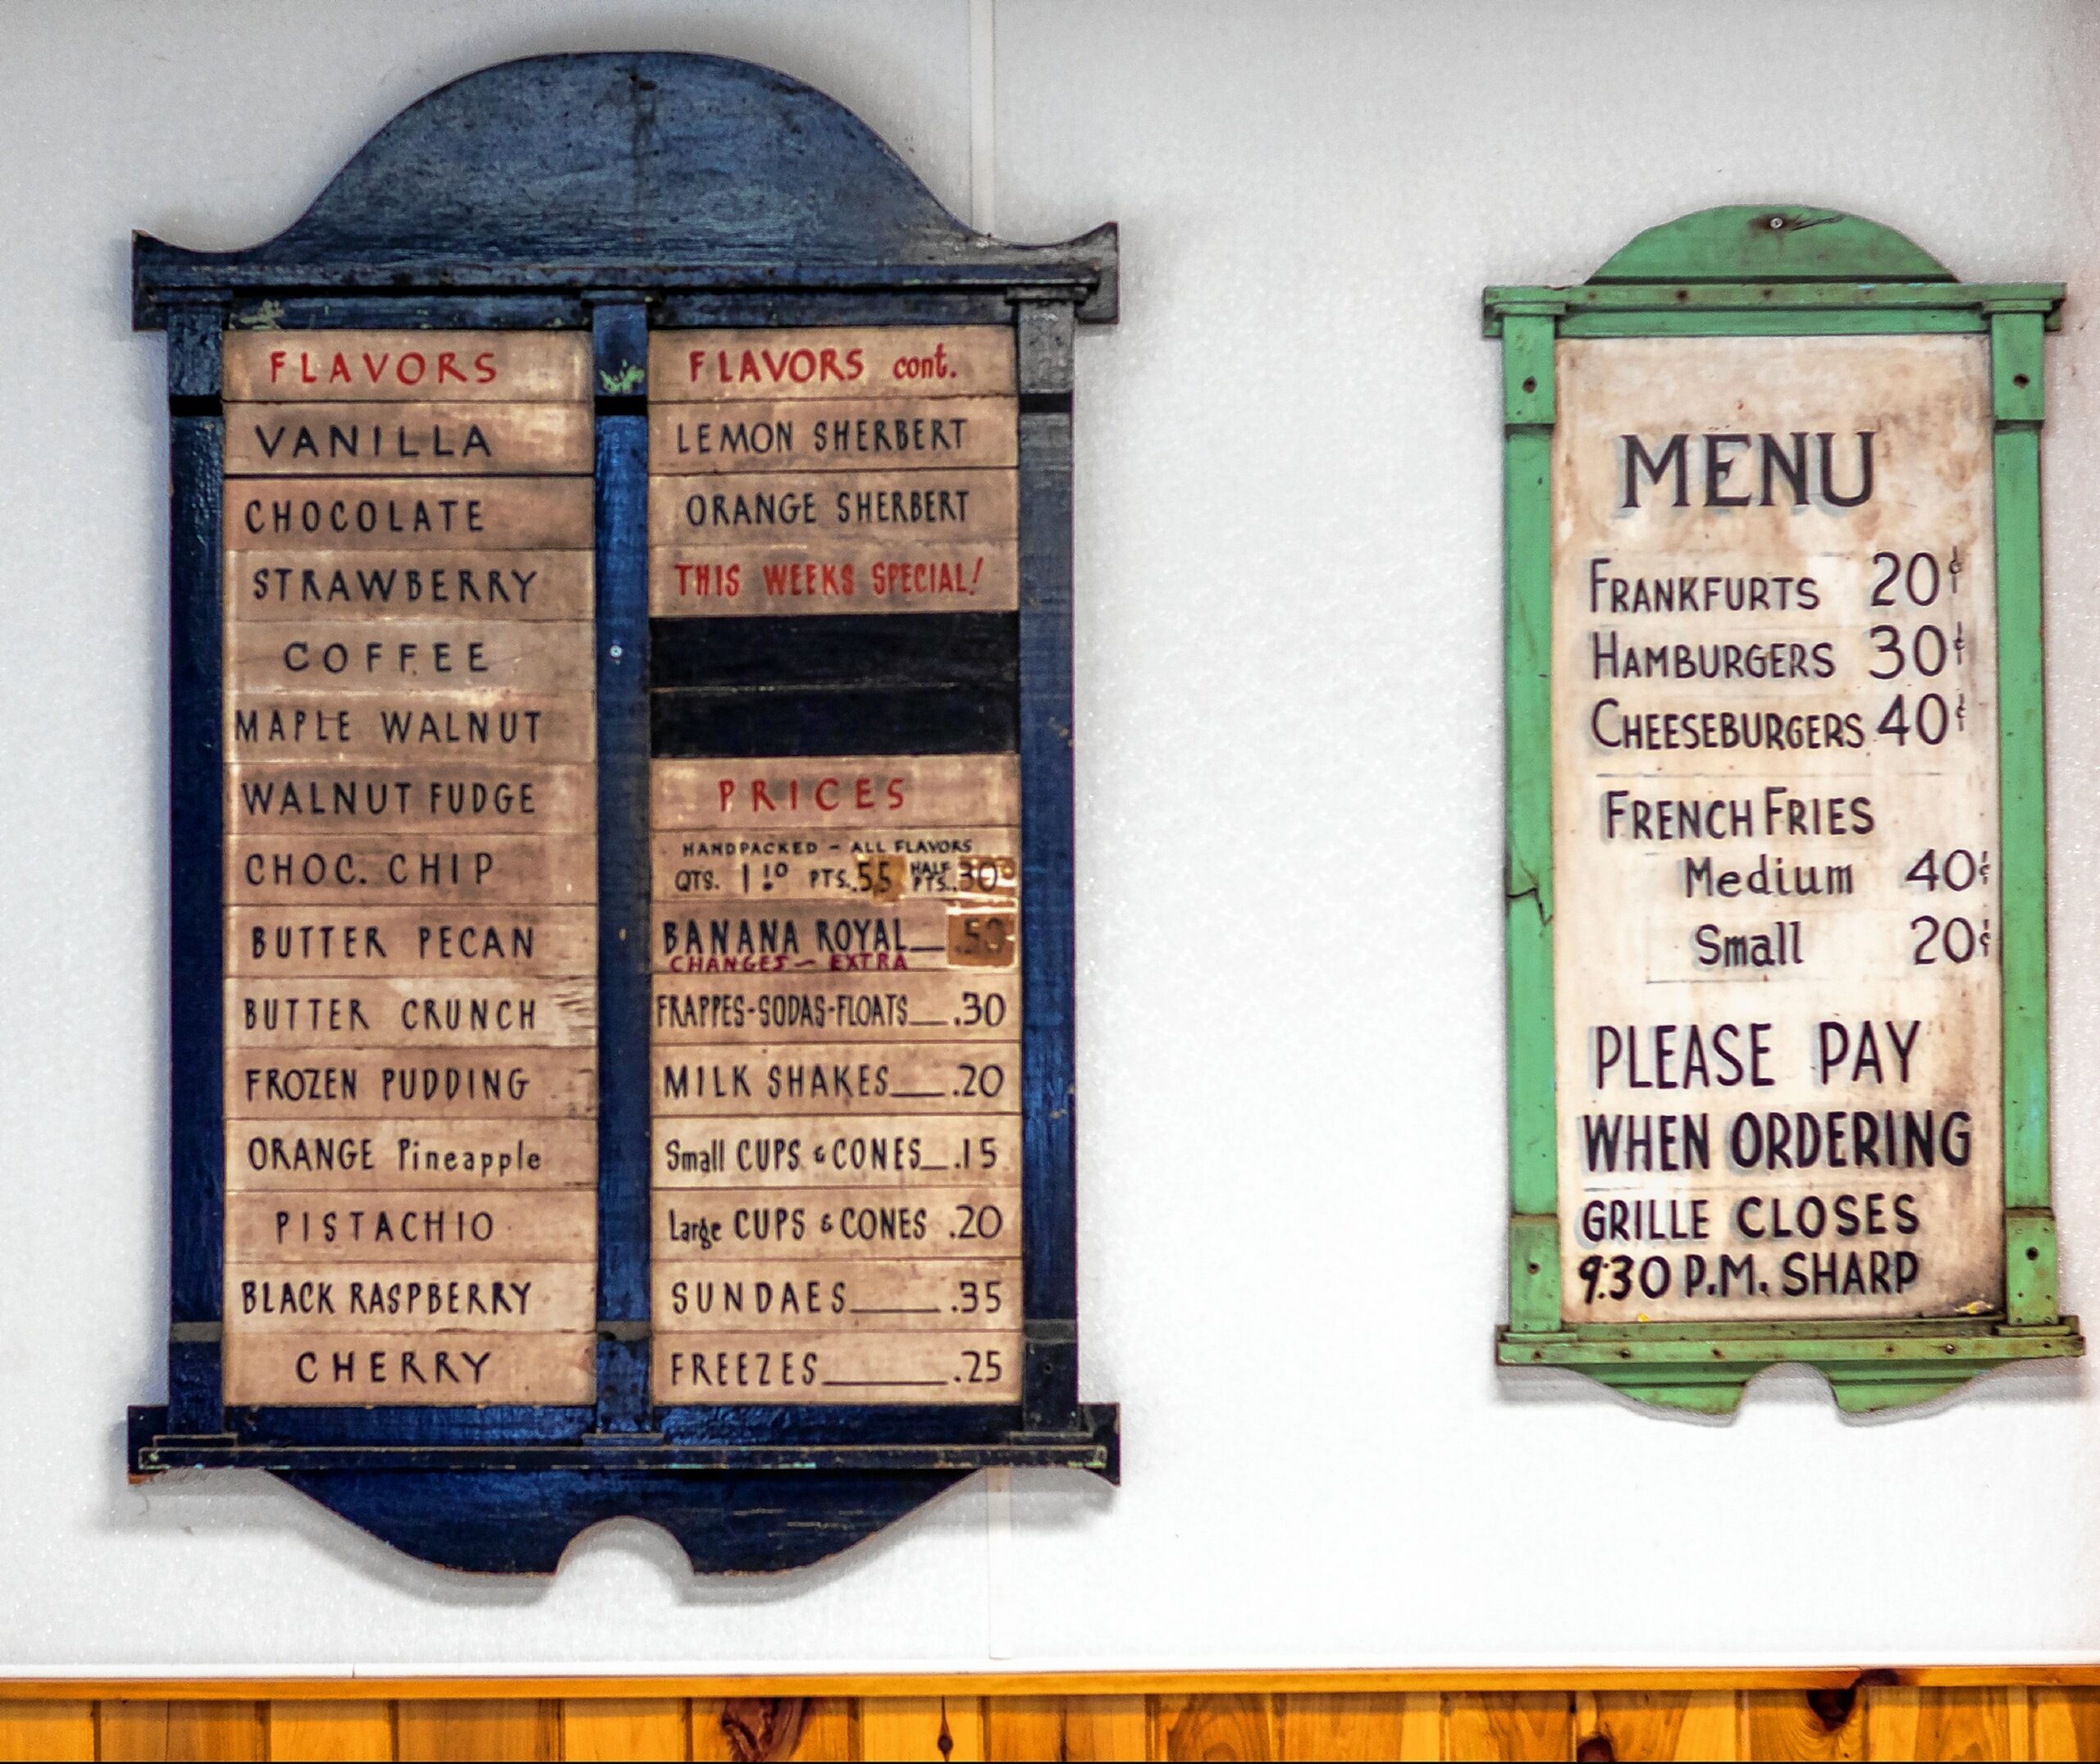 FLAVORS
VANILLA
CHOCOLATE
STRAWBERRY
COFFEE
MAPLE WALNUT
WALNUT FUDGE
CHOC. CHIP
BUTTER PECAN
BUTTER CRUNCH
FROZEN PUDDING
ORANGE Pineapple
PISTACHIO
BLACK RASPBERRY
CHERRY
FLAVORS cont.
LEMON SHERBERT
ORANGE SHERBERT
THIS WEEKS SPECIAL!
PRICES
HANDPACKED - ALL FLAVORS
QTS. 1.10 PTS..55 HALF PTS..30
BANANA ROYAL .50
CHANGES - EXTRA
FRAPPES-SODAS-FLOATS .30
MILK SHAKES .20
Small CUPS & CONES .15
Large CUPS & CONES .20
SUNDAES .35
FREEZES .25
MENU
FRANKFURTS 20¢
HAMBURGERS 30¢
CHEESEBURGERS 40¢
FRENCH FRIES
Medium 40¢
Small 20¢
PLEASE PAY
WHEN ORDERING
GRILLE CLOSES
9:30 P.M. SHARP